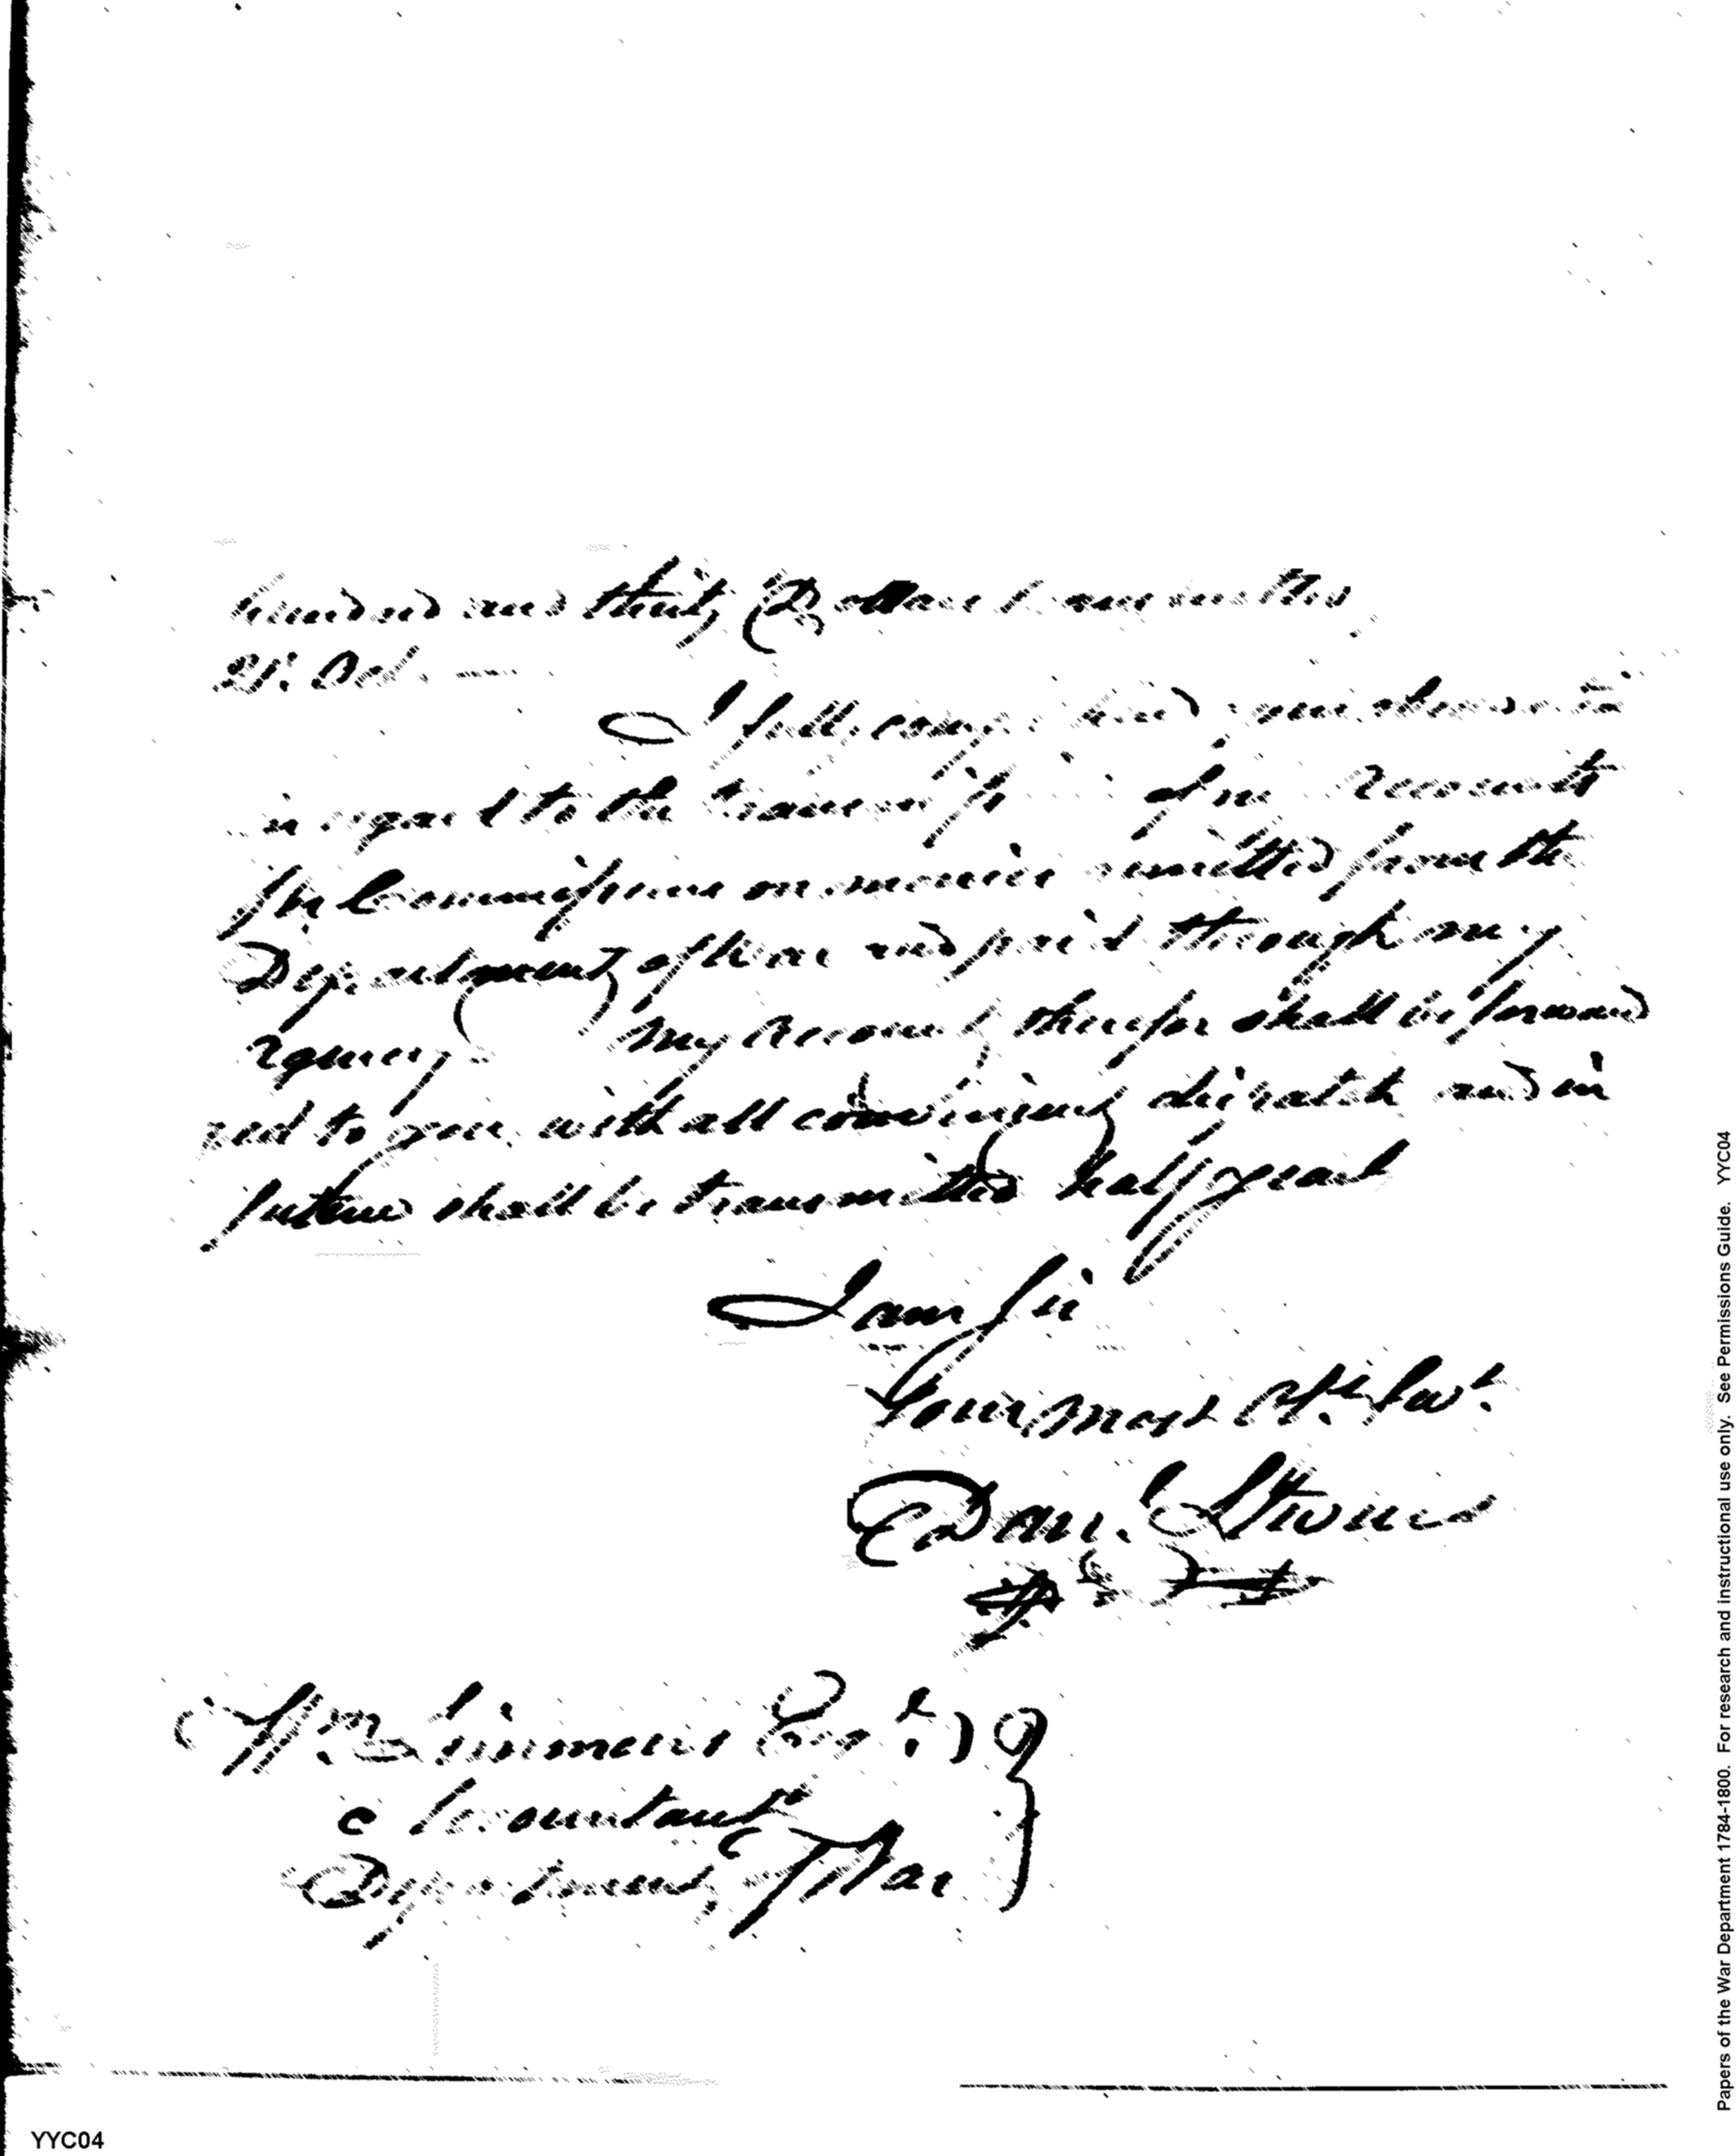 hundred and thirty Dollars transmitted
21st. Oct.
I fully comprehend your observation
in regard to the transmission of my Accounts
for Commissions on monies remitted from the
Department of War and paid through my
agency. My Account therefor shall be forward
ed to you with all convenient dispatch and in
future shall be transmitted half yearly
I am Sir
Your most Obt. Servt.
Danl. Stevens
Wm. Simmons Esqr.
Accountant
Department of War
Papers of the War Department 1784-1800. For research and instructional use only. See Permissions Guide. YYC04
YYC04